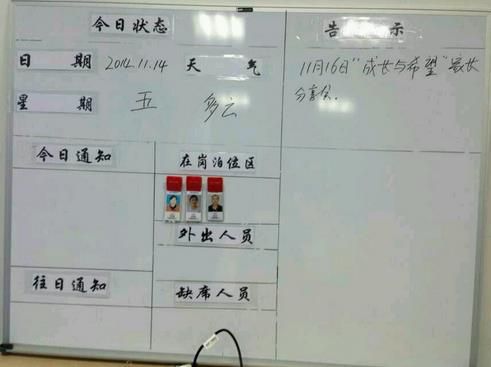 今日状态
告 示
日 期 2014.11.14 天 气
11月16日“成长与希望”家长
分享会.
星 期 五 多云
今日通知
在岗泊位区
外出人员
往日通知
缺席人员